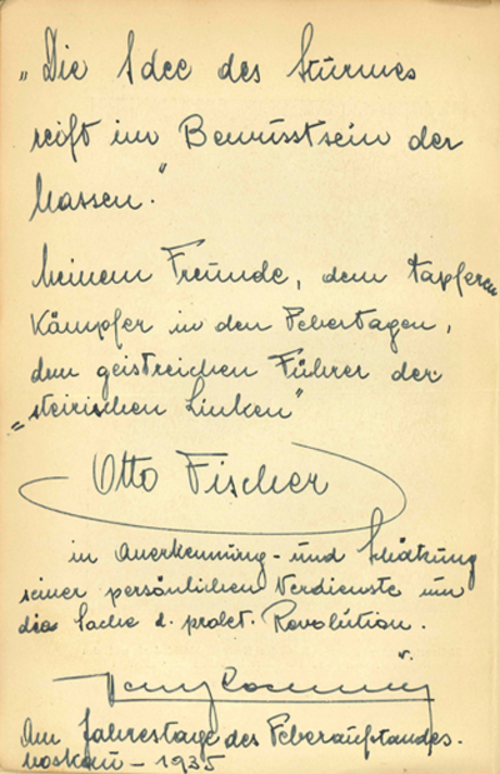 „Die Idee des Sturmes
reift im Bewusstsein der
Massen."
Meinem Freunde, dem tapferen
Kämpfer in den Febertagen,
dem geistreichen Führer der
„steirischen Linken"
Otto Fischer
in Anerkennung - und Schätzung
seiner persönlichen Verdienste um
die Sache d. prolet. Revolution.
Am Jahrestage des Feberaufstandes.
Moskau - 1935